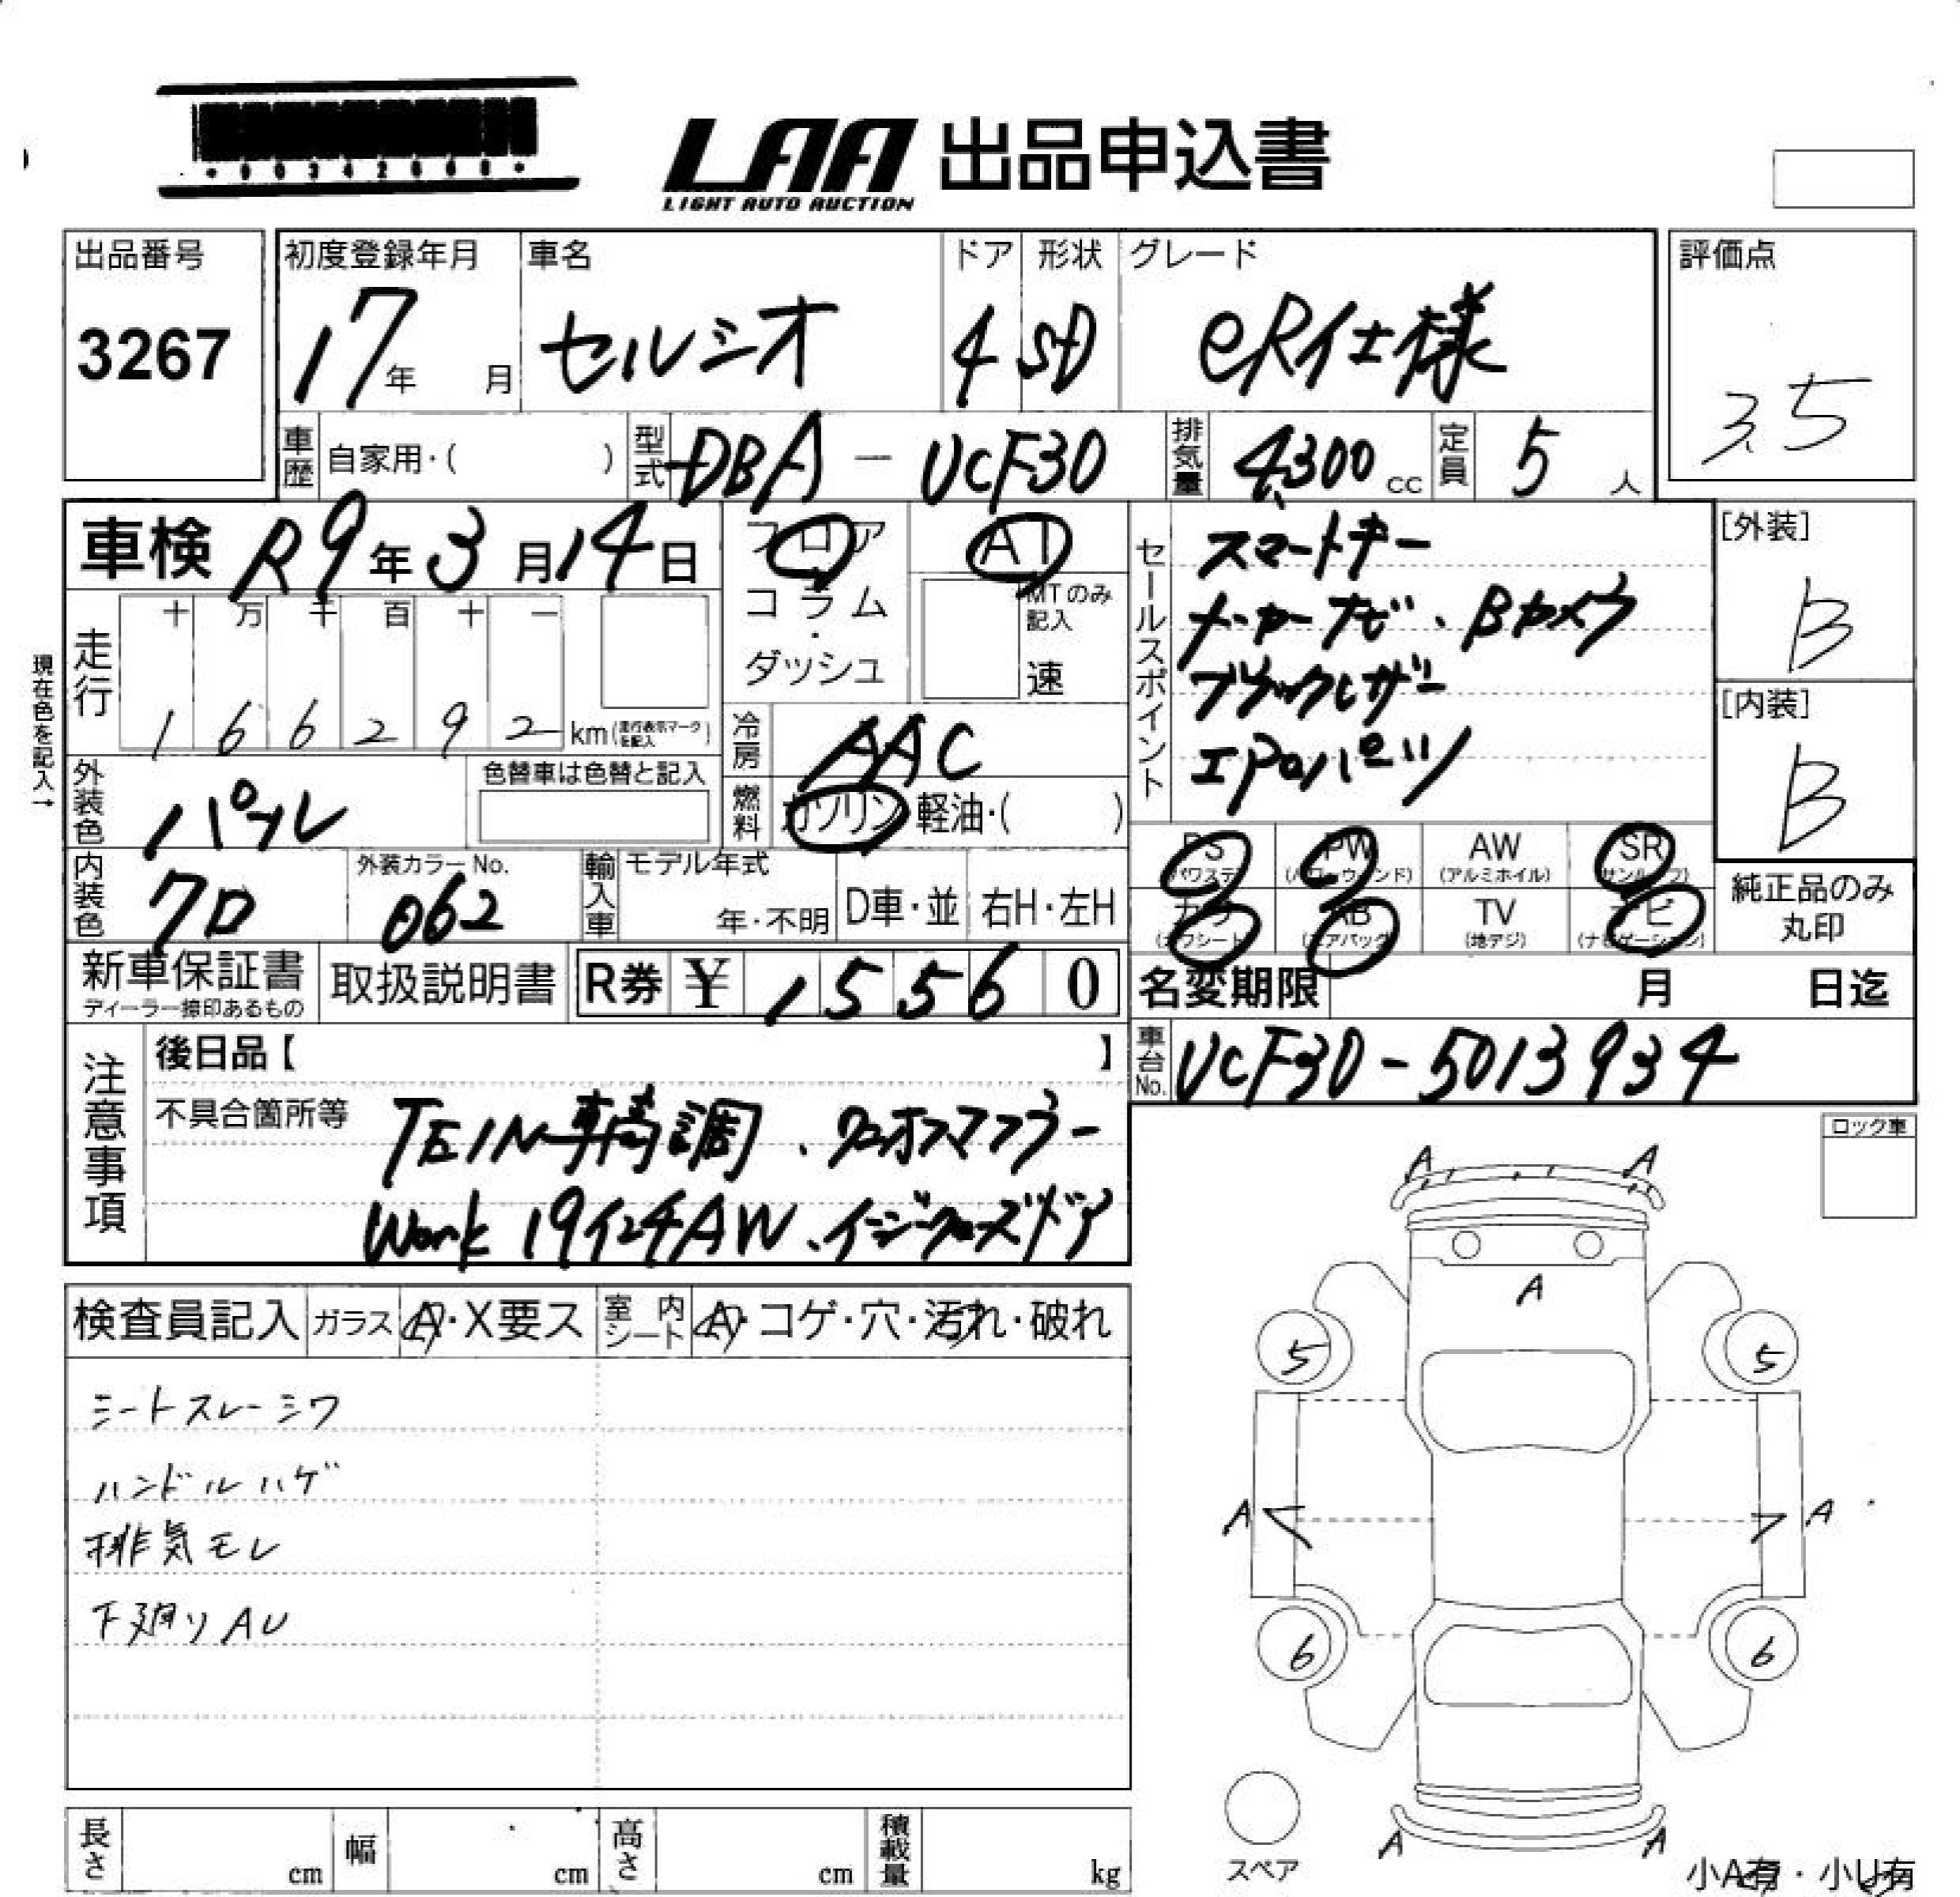 LAA 出品申込書
LIGHT AUTO AUCTION
出品番号
3267
初度登録年月
17年 月
車名
セルシオ
ドア
4
形状
SD
グレード
eR仕様
評価点
3.5
車歴 自家用・( )
型式 DBA-UCF30
排気量 4,300cc
定員 5人
車検 R9年3月14日
フロア
コラム
・
ダッシュ
AT
MTのみ記入
速
セールスポイント
スマートキー
メーカーナビ、Bカメラ
ブラックレザー
エアロパーツ
[外装]
B
[内装]
B
現在色を記入→
走行 十 万 千 百 十 一
166292 km(走行表示マークを記入)
冷房 AAC
燃料 ガソリン・軽油・( )
外装色 パール
色替車は色替と記入
内装色 クロ
外装カラーNo.
062
輸入車 モデル年式
年・不明 D車・並 右H・左H
PS PW AW SR
(パワステ) (パワーウィンド) (アルミホイル) (サンルーフ)
カワ AB TV ナビ
(カワシート) (エアバック) (地デジ) (ナビゲーション)
純正品のみ
丸印
新車保証書
ディーラー捺印あるもの
取扱説明書
R券 ¥ 15560
名変期限 月 日迄
車台No. UCF30-5013934
注意事項
後日品【 】
不具合箇所等
TEIN車高調、マフラー
Work 19インチAW、イージークローズドドア
ロック車
検査員記入 ガラス A・X要ス 室内シート A・コゲ・穴・汚れ・破れ
シートスレ-シワ
ハンドルハゲ
排気モレ
下廻りAU
A A
A
5 5
A A
6 6
A A
スペア
小A有・小U有
長さ cm 幅 cm 高さ cm 積載量 kg